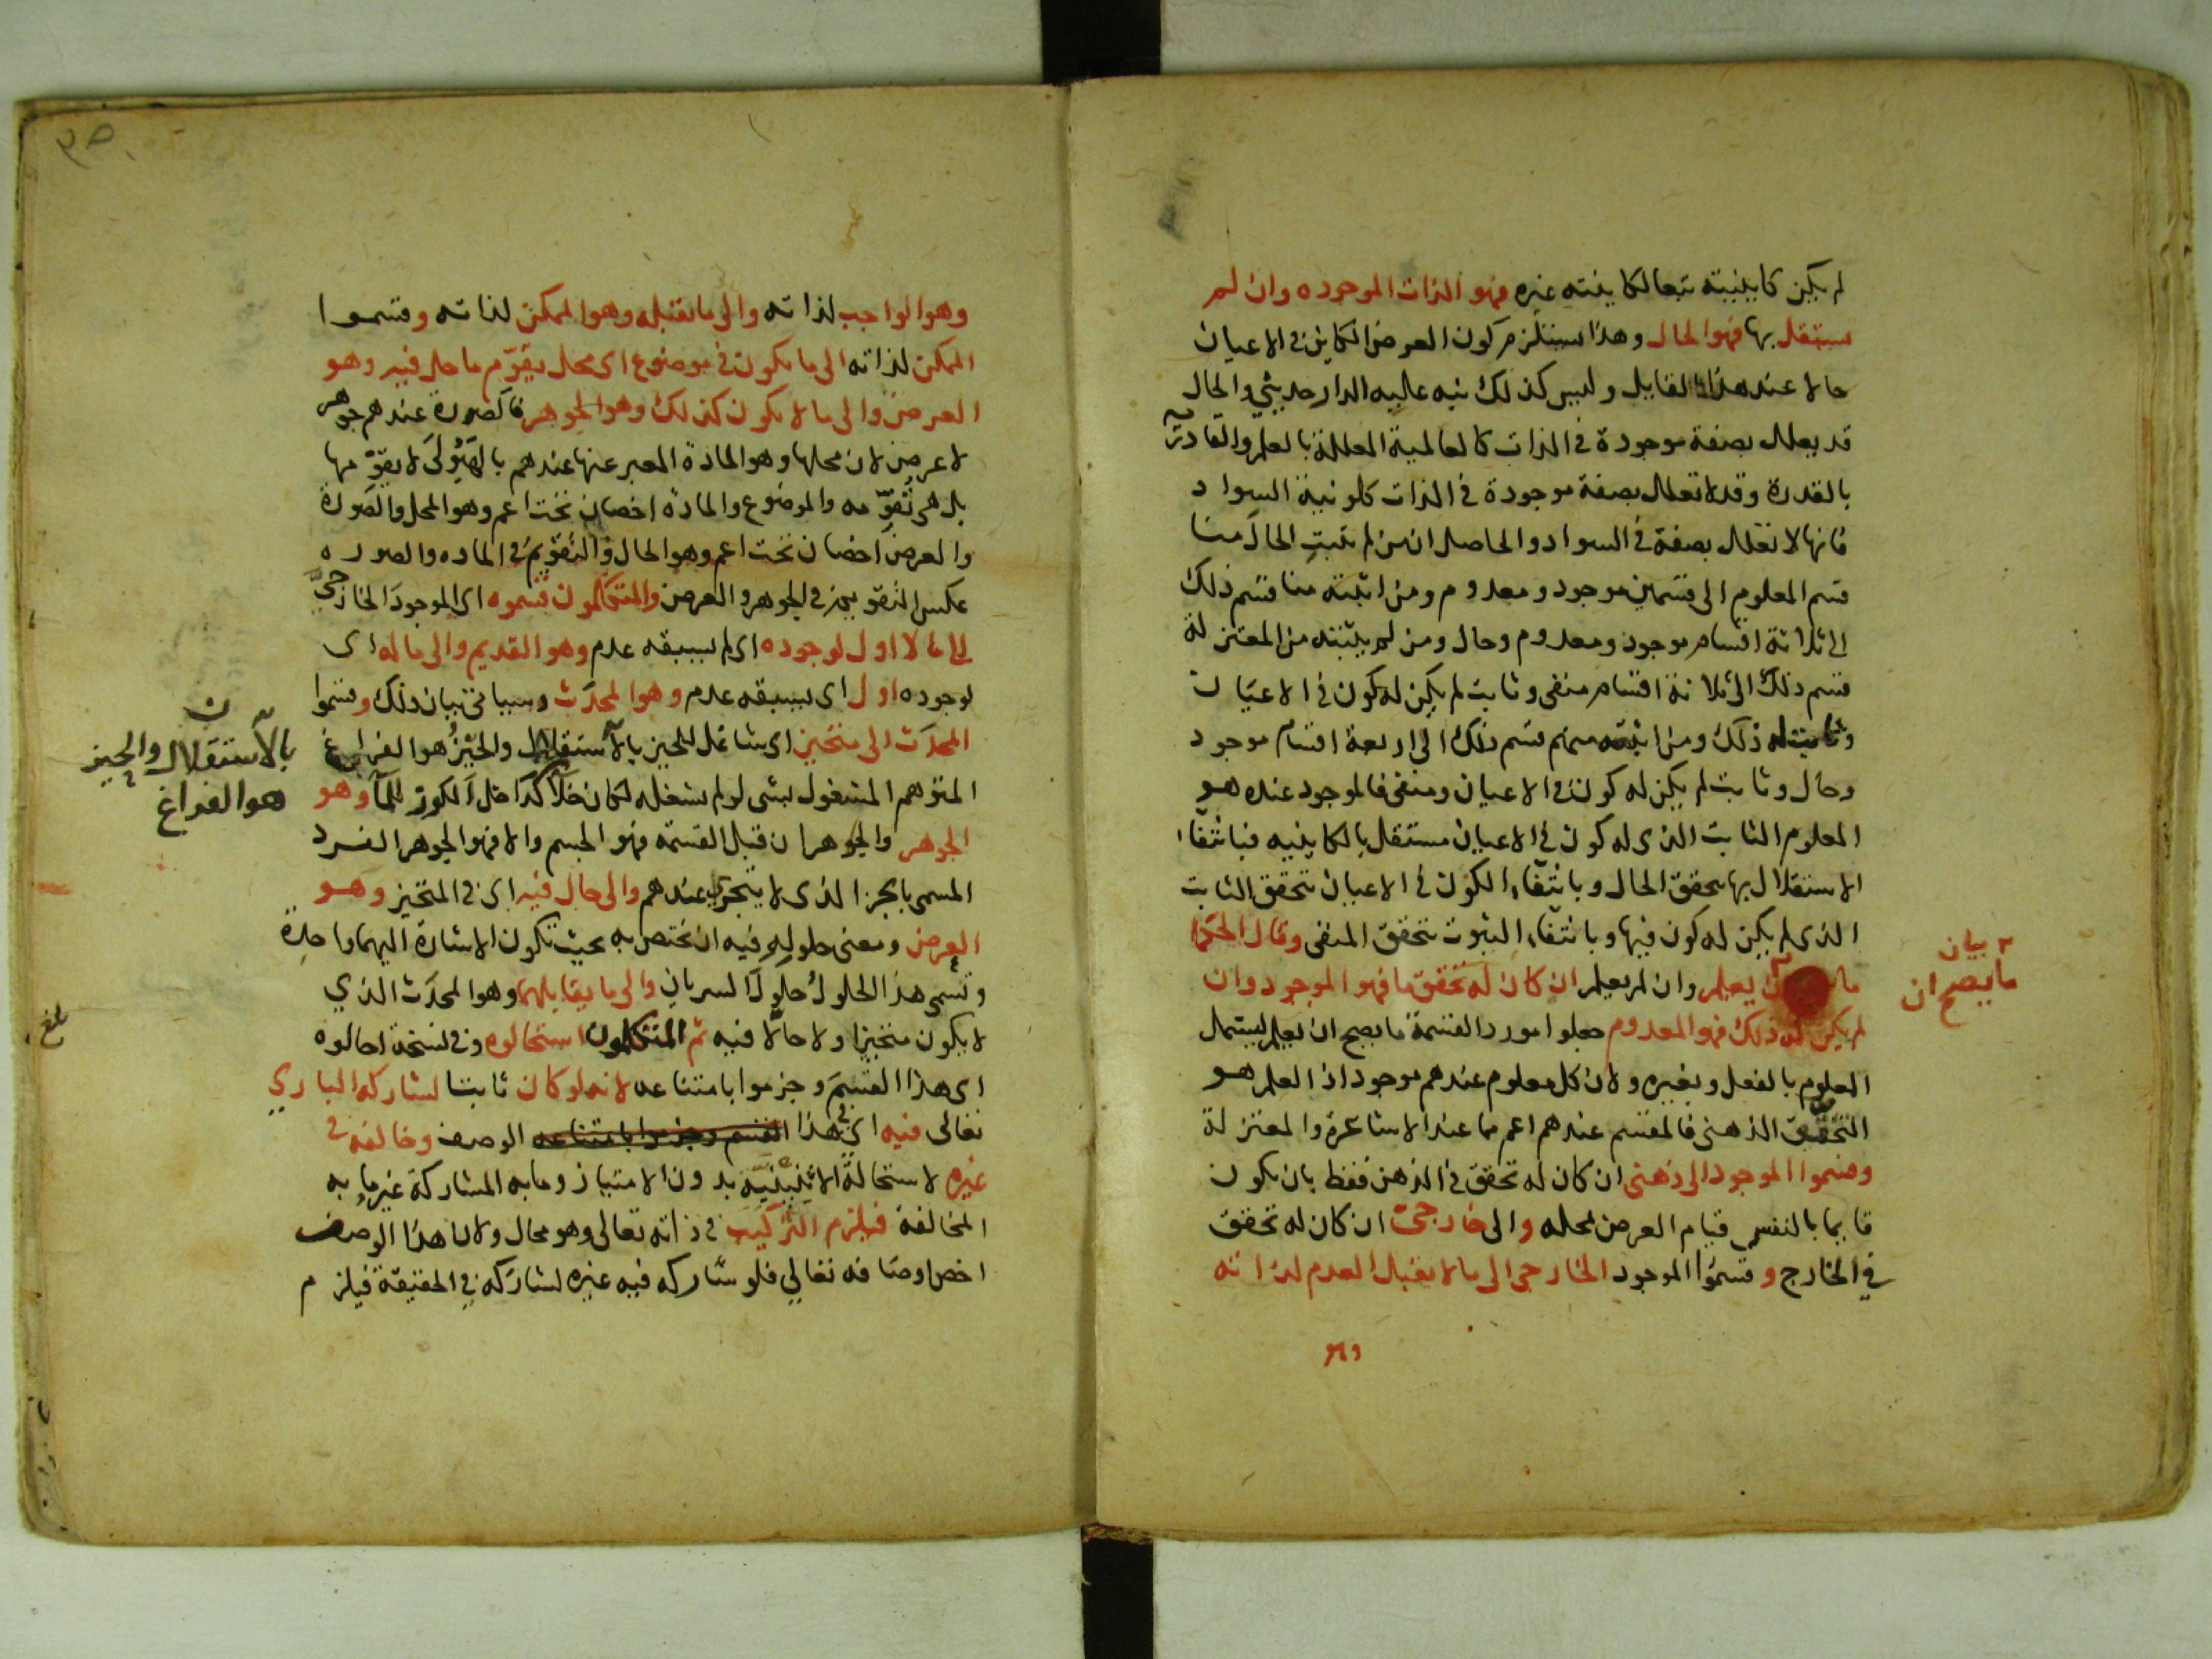 لم يكن كاينيته تبعا لكاينية غيره فهو الذات الموجوده وان لم
يستقل بها فهو الحال وهذا يستلزم كون العرض الكاين في الاعيان
حالا عند هذا القايل وليس كذلك نبه عليه الدارحديثي والحال
قد يعلل بصفة موجودة في الذات كالعالمية المعللة بالعلم والقادرية
بالقدرة وقد لا تعلل بصفة موجودة في الذات كلونية السواد
فانها لا تعلل بصفة في السواد والحاصل ان من لم يثبت الحال منا
قسم المعلوم الى قسمين موجود ومعدوم ومن اثبته منا قسم ذلك
الى ثلاثة اقسام موجود ومعدوم وحال ومن لم يثبته من المعتزلة
قسم ذلك الى ثلاثة اقسام منفى وثابت لم يكن له كون في الاعيان
وثابت له ذلك ومن اثبته منهم قسم ذلك الى اربعة اقسام موجود
وحال وثابت لم يكن له كون في الاعيان ومنفى فالموجود عنده هو
المعلوم الثابت الذى له كون في الاعيان مستقل بالكاينيه فبانتفاء
الاستقلال بها تحقق الحال وبانتفاء الكون في الاعيان تحقق الثابت
الذى لم يكن له كون فيها وبانتفاء الثبوت تحقق المنفى وقال الحكما
ما ان يعلم وان لم يعلم ان كان له تحقق ما فهو الموجود وان
بيان
ما يصح ان
لم يكن له ذلك فهو المعدوم جعلوا مورد القسمة ما يصح ان يعلم ليشمل
المعلوم بالفعل وبغيره ولان كل معلوم عندهم موجود اذ العلم هو
التحقق الذهنى فالمقسم عندهم اعم مما عند الاشاعرة والمعتزلة
وقسموا الموجود الى ذهنى ان كان له تحقق في الذهن فقط بان يكون
قايما بالنفس قيام العرض بمحله والى خارجى ان كان له تحقق
في الخارج وقسموا الموجود الخارجى الى ما لا يقبل العدم لذاته
وهو
وهو الواجب لذاته والى ما يقبله وهو الممكن لذاته وقسموا
الممكن لذاته الى ما يكون في موضوع اى محل يقوّم ما حل فيه وهو
العرض والى ما لا يكون كذلك وهو الجوهر فالصورة عندهم جوهر
لا عرض لان محلها وهو المادة المعبر عنها عندهم بالهيولى لا يقوّمها
بل هى تقوّمه والموضوع والمادة اخصان تحت اعم وهو المحل والصورة
والعرض اخصان تحت اعم وهو الحال والتقويم في الماده والصوره
عكس التقويم في الجوهر والعرض والمتكلمون قسموه اى الموجود الخارجىّ
الى ما لا اول لوجوده اى لم يسبقه عدم وهو القديم والى ما له اى
لوجوده اول اى يسبقه عدم وهو المحدث وسياتى بيان ذلك وقسموا
المحدث الى متحيز اى شاغل للحيز بالاستقلال والحيز هو الفراغ
بالاستقلال والحيز
هو الفراغ
المتوهم المشغول بشى لو لم يشغله لكان خلأ كداخل الكوز للمآ وهو
الجوهر والجوهر ان قبل القسمة فهو الجسم والا فهو الجوهر الفرد
المسمى بالجزء الذى لا يتجزى عندهم والى حال فيه اى في المتحيز وهو
العرض ومعنى حلوله فيه ان يختص به بحيث تكون الاشارة اليهما واحدة
وتسمى هذا الحلول حلول السريان والى ما يقابلهما وهو المحدث الذي
لا يكون متحيزا ولا حالا فيه ثم المتكلمون استحالوه وفى نسخة احالوه
بلغ
اى هذا القسم وجزموا بامتناعه لانه لو كان ثابتا لشاركه الباري
تعالى فيه اى في هذا القسم وجزموا بامتناعه الوصف وخالفه في
غيره لاستحالة الاثنينية بدون الامتياز وما به المشاركة غير ما به
المخالفة فيلزم التركيب في ذاته تعالى وهو محال ولان هذا الوصف
اخص اوصافه تعالي فلو شاركه فيه غيره لشاركه في الحقيقة فيلزم